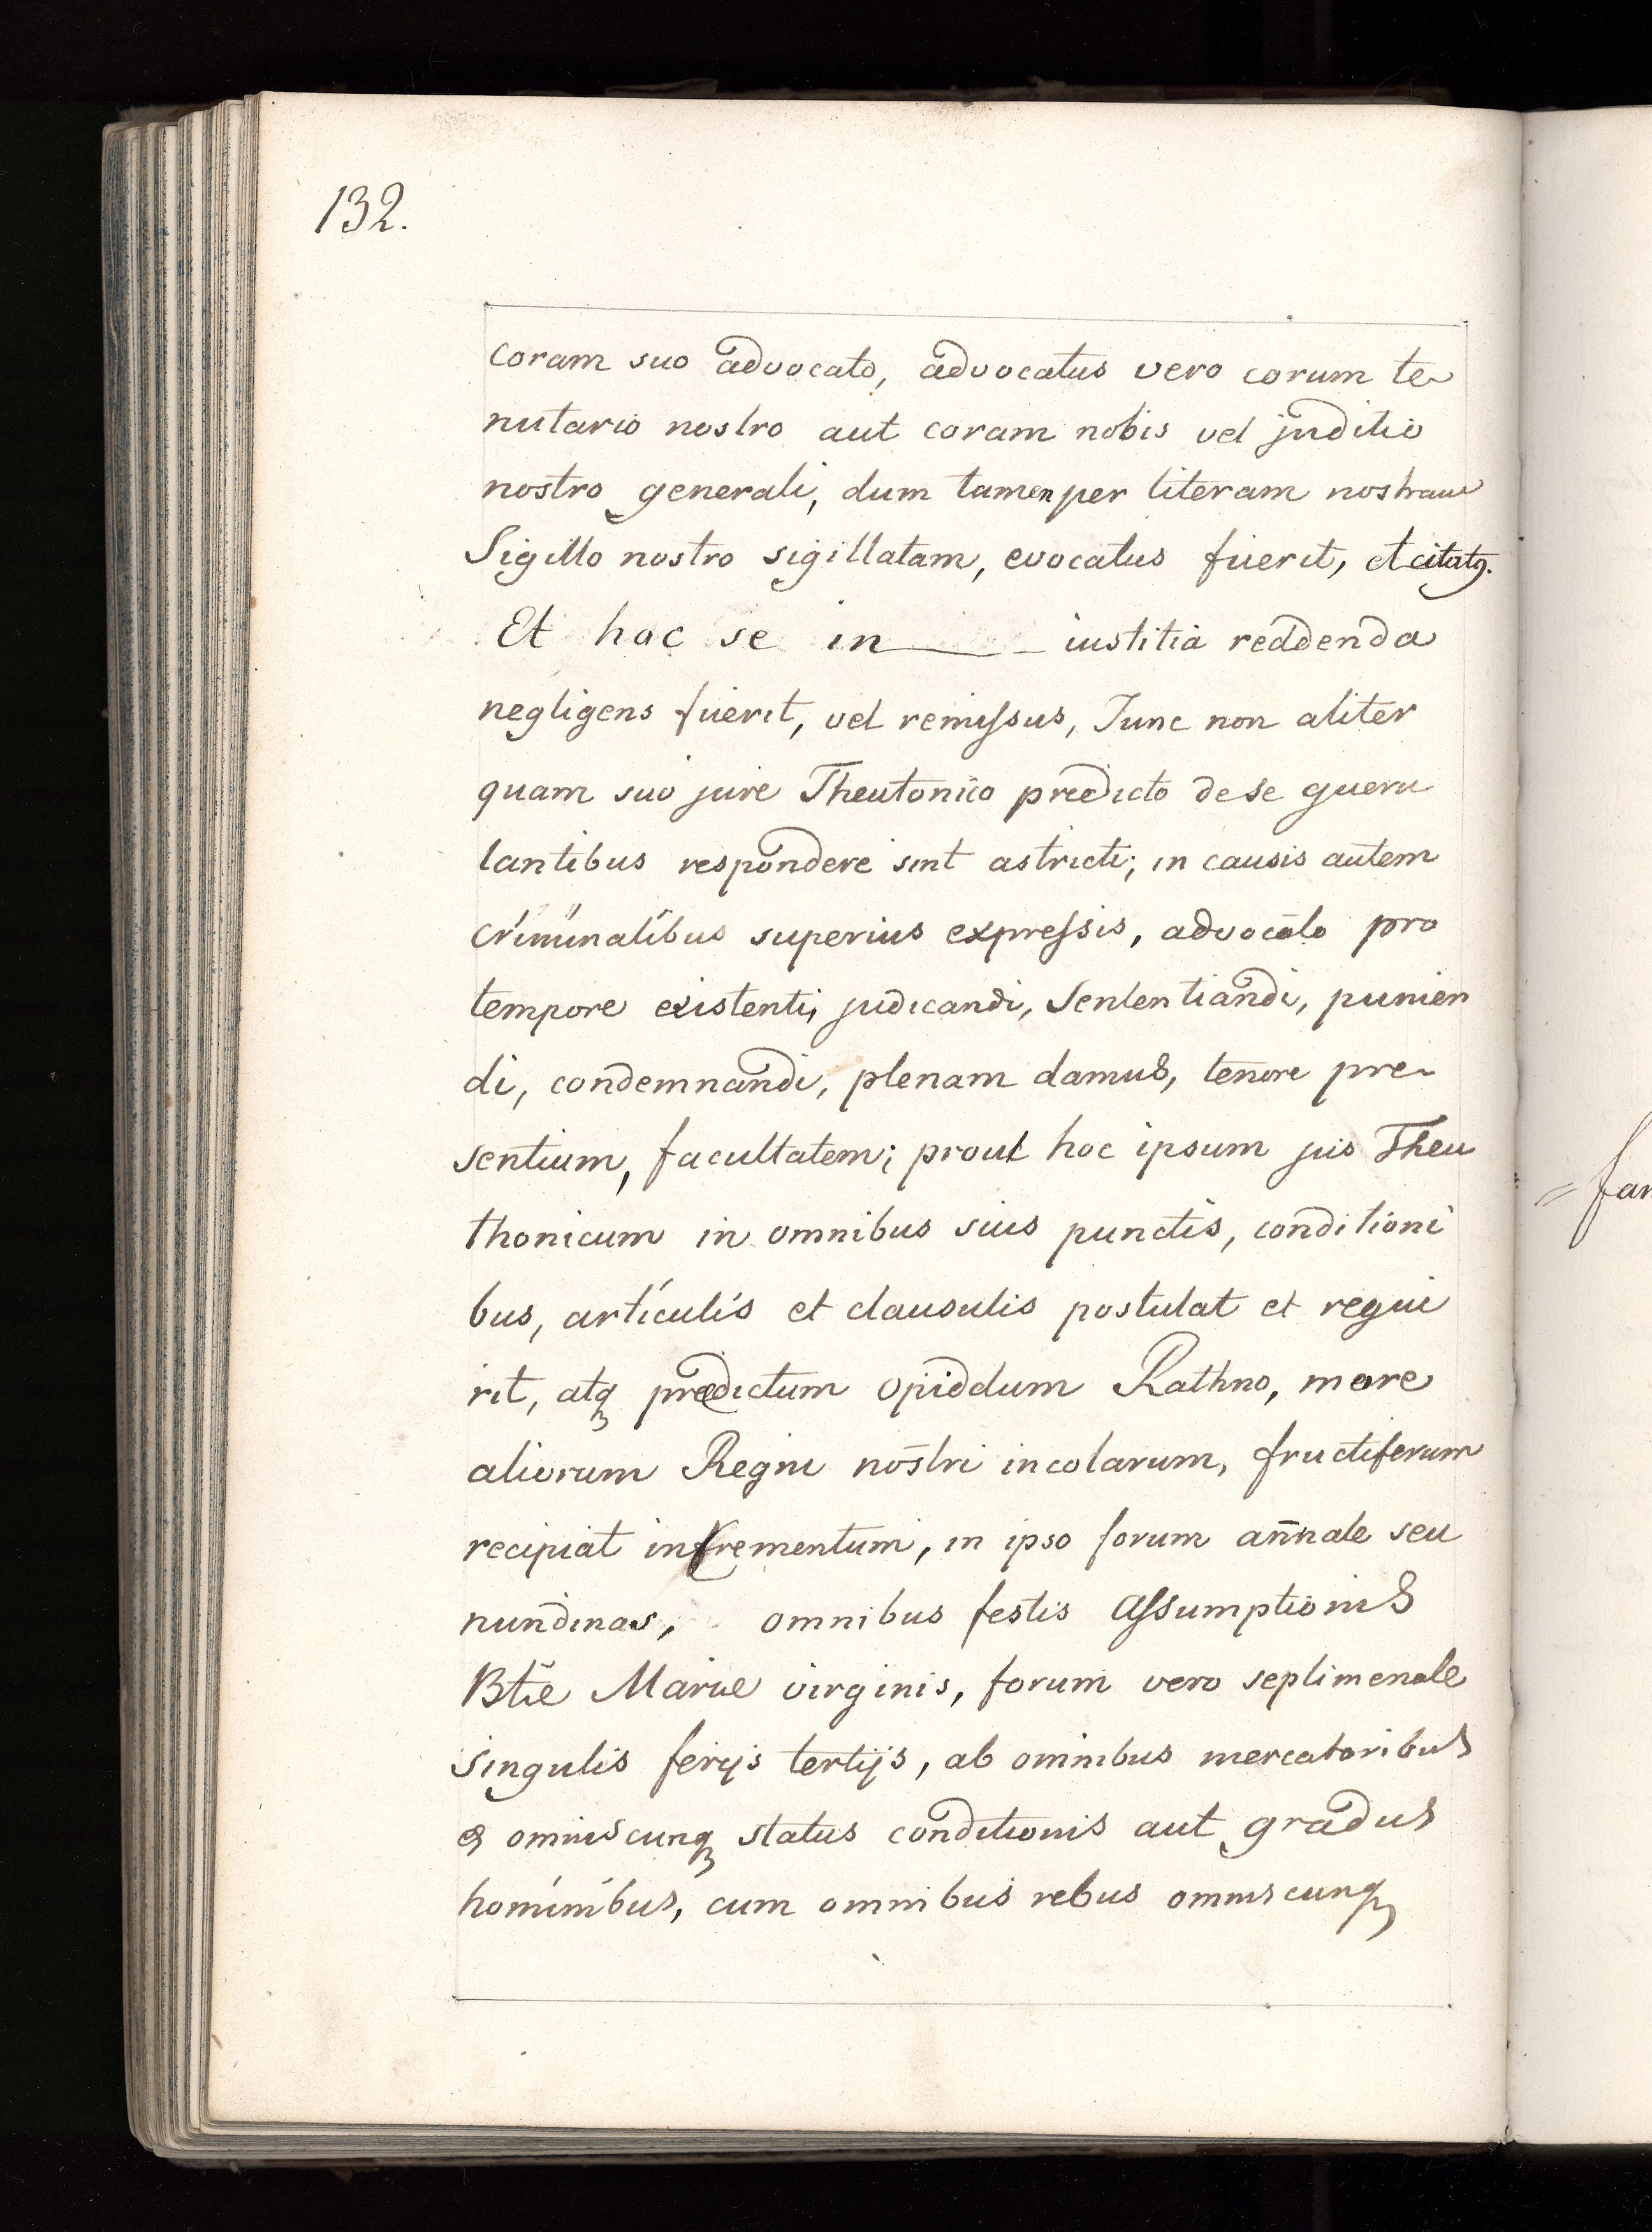 132.
coram suo advocato, advocatus vero corum te-
nutario nostro aut coram nobis vel juditio
nostro generali, dum tamen per literam nostram
Sigillo nostro sigillatam, evocatus fuerit, et citatq.
Et hac se in ——— iustitia reddenda
negligens fuerit, vel remissus, Tunc non aliter
quam suo jure Theutonico predicto de se queru
lantibus respondere sint astricti; in causis autem
criminalibus superius expressis, advocato pro
tempore existenti, judicandi, Sententiandi, punien
di, condemnandi, plenam damus, tenore pre-
sentium, facultatem; prout hoc ipsum jus Theu
thonicum in omnibus suis punctis, conditioni
bus, articulis et clausulis postulat et requi
rit, atq predictum opiddum Rathno, more
aliorum Regni nostri incolarum, fructiferum
recipiat incrementum, in ipso forum annale seu
nundinas, omnibus festis Assumptionis
Btie Mariae virginis, forum vero septimenale
singulis ferijs tertijs, ab omnibus mercatoribus
et omniscunq status conditionis aut gradus
hominibus, cum omnibus rebus omniscunq